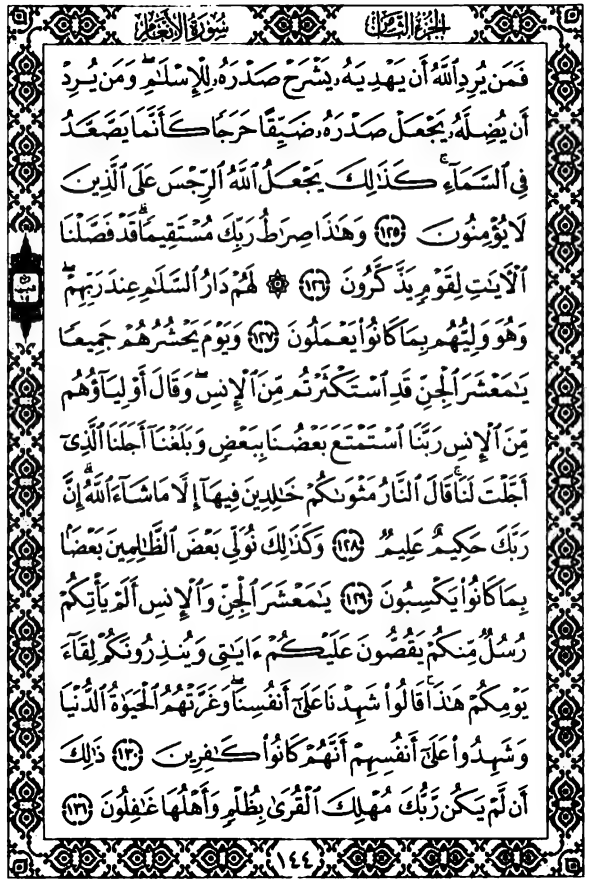 الجزء الثامن
سورة الأنعام
فَمَن يُرِدِ ٱللَّهُ أَن يَهْدِيَهُۥ يَشْرَحْ صَدْرَهُۥ لِلْإِسْلَٰمِ ۖ وَمَن يُرِدْ
أَن يُضِلَّهُۥ يَجْعَلْ صَدْرَهُۥ ضَيِّقًا حَرَجًا كَأَنَّمَا يَصَّعَّدُ
فِى ٱلسَّمَآءِ ۚ كَذَٰلِكَ يَجْعَلُ ٱللَّهُ ٱلرِّجْسَ عَلَى ٱلَّذِينَ
لَا يُؤْمِنُونَ ١٢٥ وَهَٰذَا صِرَٰطُ رَبِّكَ مُسْتَقِيمًا ۗ قَدْ فَصَّلْنَا
ٱلْـَٔايَٰتِ لِقَوْمٍ يَذَّكَّرُونَ ١٢٦ ۞ لَهُمْ دَارُ ٱلسَّلَٰمِ عِندَ رَبِّهِمْ ۖ
وَهُوَ وَلِيُّهُم بِمَا كَانُوا۟ يَعْمَلُونَ ١٢٧ وَيَوْمَ يَحْشُرُهُمْ جَمِيعًا
يَٰمَعْشَرَ ٱلْجِنِّ قَدِ ٱسْتَكْثَرْتُم مِّنَ ٱلْإِنسِ ۖ وَقَالَ أَوْلِيَآؤُهُم
مِّنَ ٱلْإِنسِ رَبَّنَا ٱسْتَمْتَعَ بَعْضُنَا بِبَعْضٍ وَبَلَغْنَآ أَجَلَنَا ٱلَّذِىٓ
أَجَّلْتَ لَنَا ۚ قَالَ ٱلنَّارُ مَثْوَىٰكُمْ خَٰلِدِينَ فِيهَآ إِلَّا مَا شَآءَ ٱللَّهُ ۗ إِنَّ
رَبَّكَ حَكِيمٌ عَلِيمٌ ١٢٨ وَكَذَٰلِكَ نُوَلِّى بَعْضَ ٱلظَّٰلِمِينَ بَعْضًۢا
بِمَا كَانُوا۟ يَكْسِبُونَ ١٢٩ يَٰمَعْشَرَ ٱلْجِنِّ وَٱلْإِنسِ أَلَمْ يَأْتِكُمْ
رُسُلٌ مِّنكُمْ يَقُصُّونَ عَلَيْكُمْ ءَايَٰتِى وَيُنذِرُونَكُمْ لِقَآءَ
يَوْمِكُمْ هَٰذَا ۚ قَالُوا۟ شَهِدْنَا عَلَىٰٓ أَنفُسِنَا ۖ وَغَرَّتْهُمُ ٱلْحَيَوٰةُ ٱلدُّنْيَا
وَشَهِدُوا۟ عَلَىٰٓ أَنفُسِهِمْ أَنَّهُمْ كَانُوا۟ كَٰفِرِينَ ١٣٠ ذَٰلِكَ
أَن لَّمْ يَكُن رَّبُّكَ مُهْلِكَ ٱلْقُرَىٰ بِظُلْمٍ وَأَهْلُهَا غَٰفِلُونَ ١٣١
١٤٤